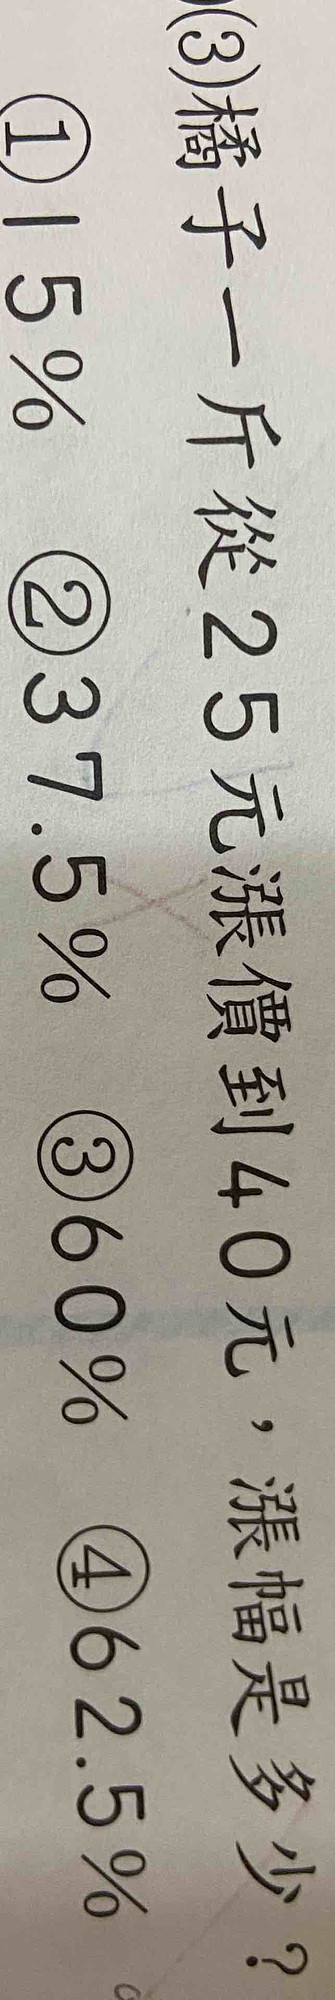 (3)橘子一斤從25元漲價到40元，漲幅是多少？
①15% ②37.5% ③60% ④62.5%